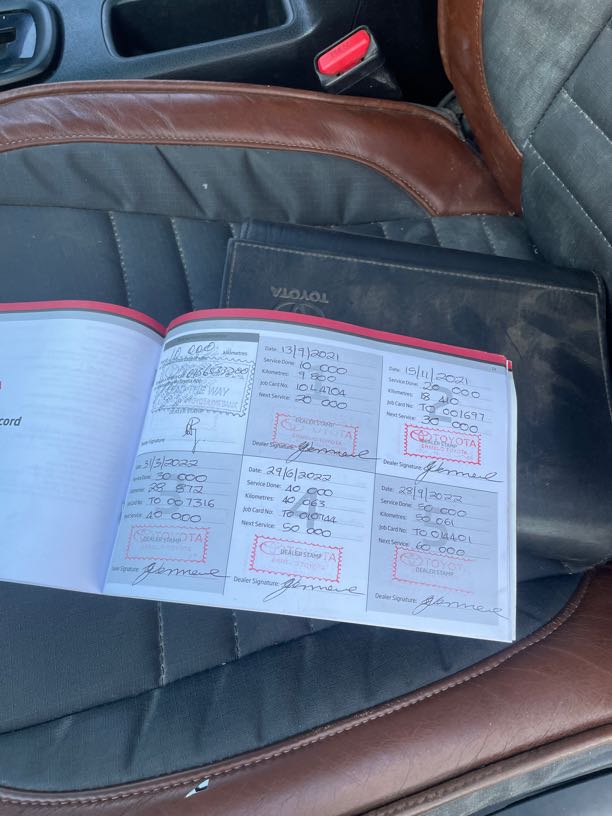 TOYOTA
cord
10 000
Kilometres
THE WAY
Signature
Date: 13/9/2021
Service Done: 10 000
Kilometres: 9 800
Job Card No: 1014704
Next Service: 20 000
DEALER STAMP
TOYOTA
Dealer Signature:
Date: 15/11/2021
Service Done: 20 000
Kilometres: 18 410
Job Card No: TO 001697
Next Service: 30 000
TOYOTA
DEALER STAMP
Dealer Signature:
31/3/2022
30 000
28 872
Card No: TO 007316
Next Service: 40 000
TOYOTA
DEALER STAMP
Signature:
Date: 29/6/2022
Service Done: 40 000
Kilometres: 40 063
Job Card No: TO 010744
Next Service: 50 000
4
TOYOTA
DEALER STAMP
Dealer Signature:
Date: 28/9/2022
Service Done: 50 000
Kilometres: 50 061
Job Card No: TO 014401
Next Service: 60 000
TOYOTA
DEALER STAMP
Dealer Signature: